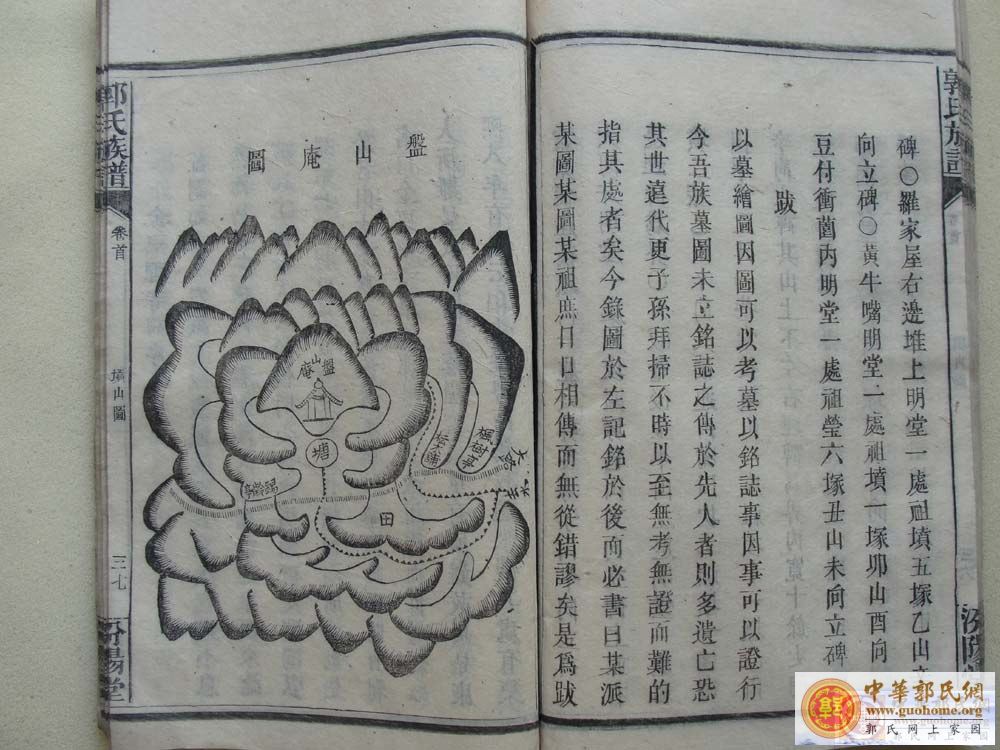 郭氏族譜
碑○羅家屋右邊堆上明堂一處祖墳五塚乙山
向立碑○黃牛嘴明堂一處祖墳一塚丣山酉向
豆付衝薗內明堂一處祖瑩六塚丑山未向立碑
跋
以墓繪圖因圖可以考墓以銘誌事因事可以證行
今吾族墓圖未立銘誌之傳於先人者則多遺亡恐
其世遠代更子孫拜掃不時以至無考無證而難的
指其處者矣今錄圖於左記銘於後而必書曰某派
某圖某圖某祖庶日日相傳而無從錯謬矣是爲跋
盤山庵圖
盤山庵
塘
楓樹亭
大路
田
郭氏族譜
卷首
山圖
三七
汾陽堂
中華郭氏網
www.guohome.org
郭氏網上家園